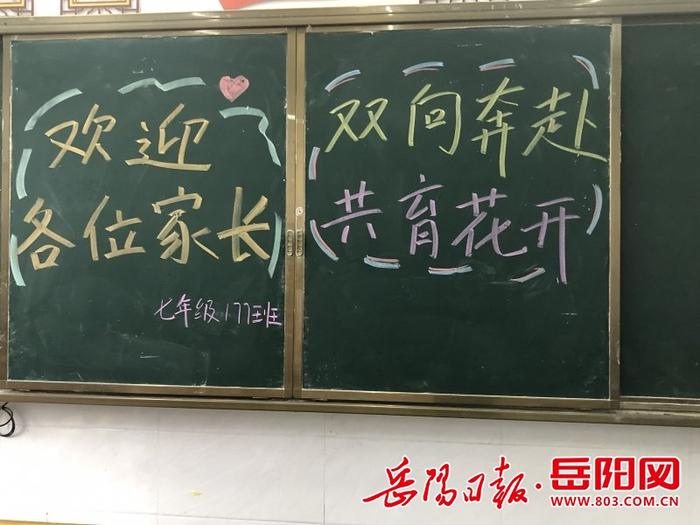 欢迎
各位家长
七年级177班
双向奔赴
共育花开
岳陽日报·岳阳网
www.803.com.cn